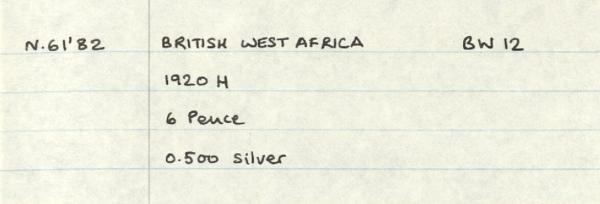 N.61'82 BRITISH WEST AFRICA BW 12
1920 H
6 Pence
0.500 silver